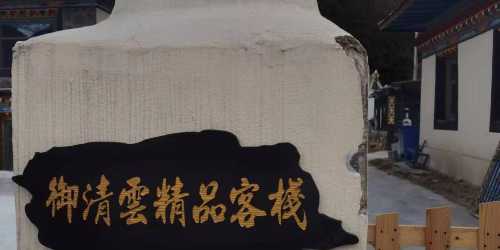 御清雲精品客棧